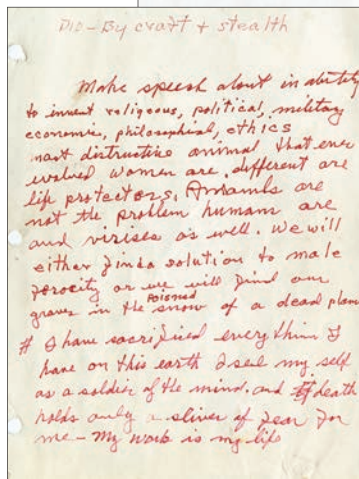 DIO-By craft + stealth
Make speech about inability
to invent religeous, political, military
economic, philosophical, ethics
most distructive animal that ever
evolved women are, different are
life protectors. Animals are
not the problem humans are
and virises as well. We will
either find a solution to male
ferocity or we will find our
graves in the poisoned snow of a dead plan
# I have sacrificed everything I
have on this earth I see my self
as a soldier of the mind. and death
holds only a sliver of fear for
me - My work is my life